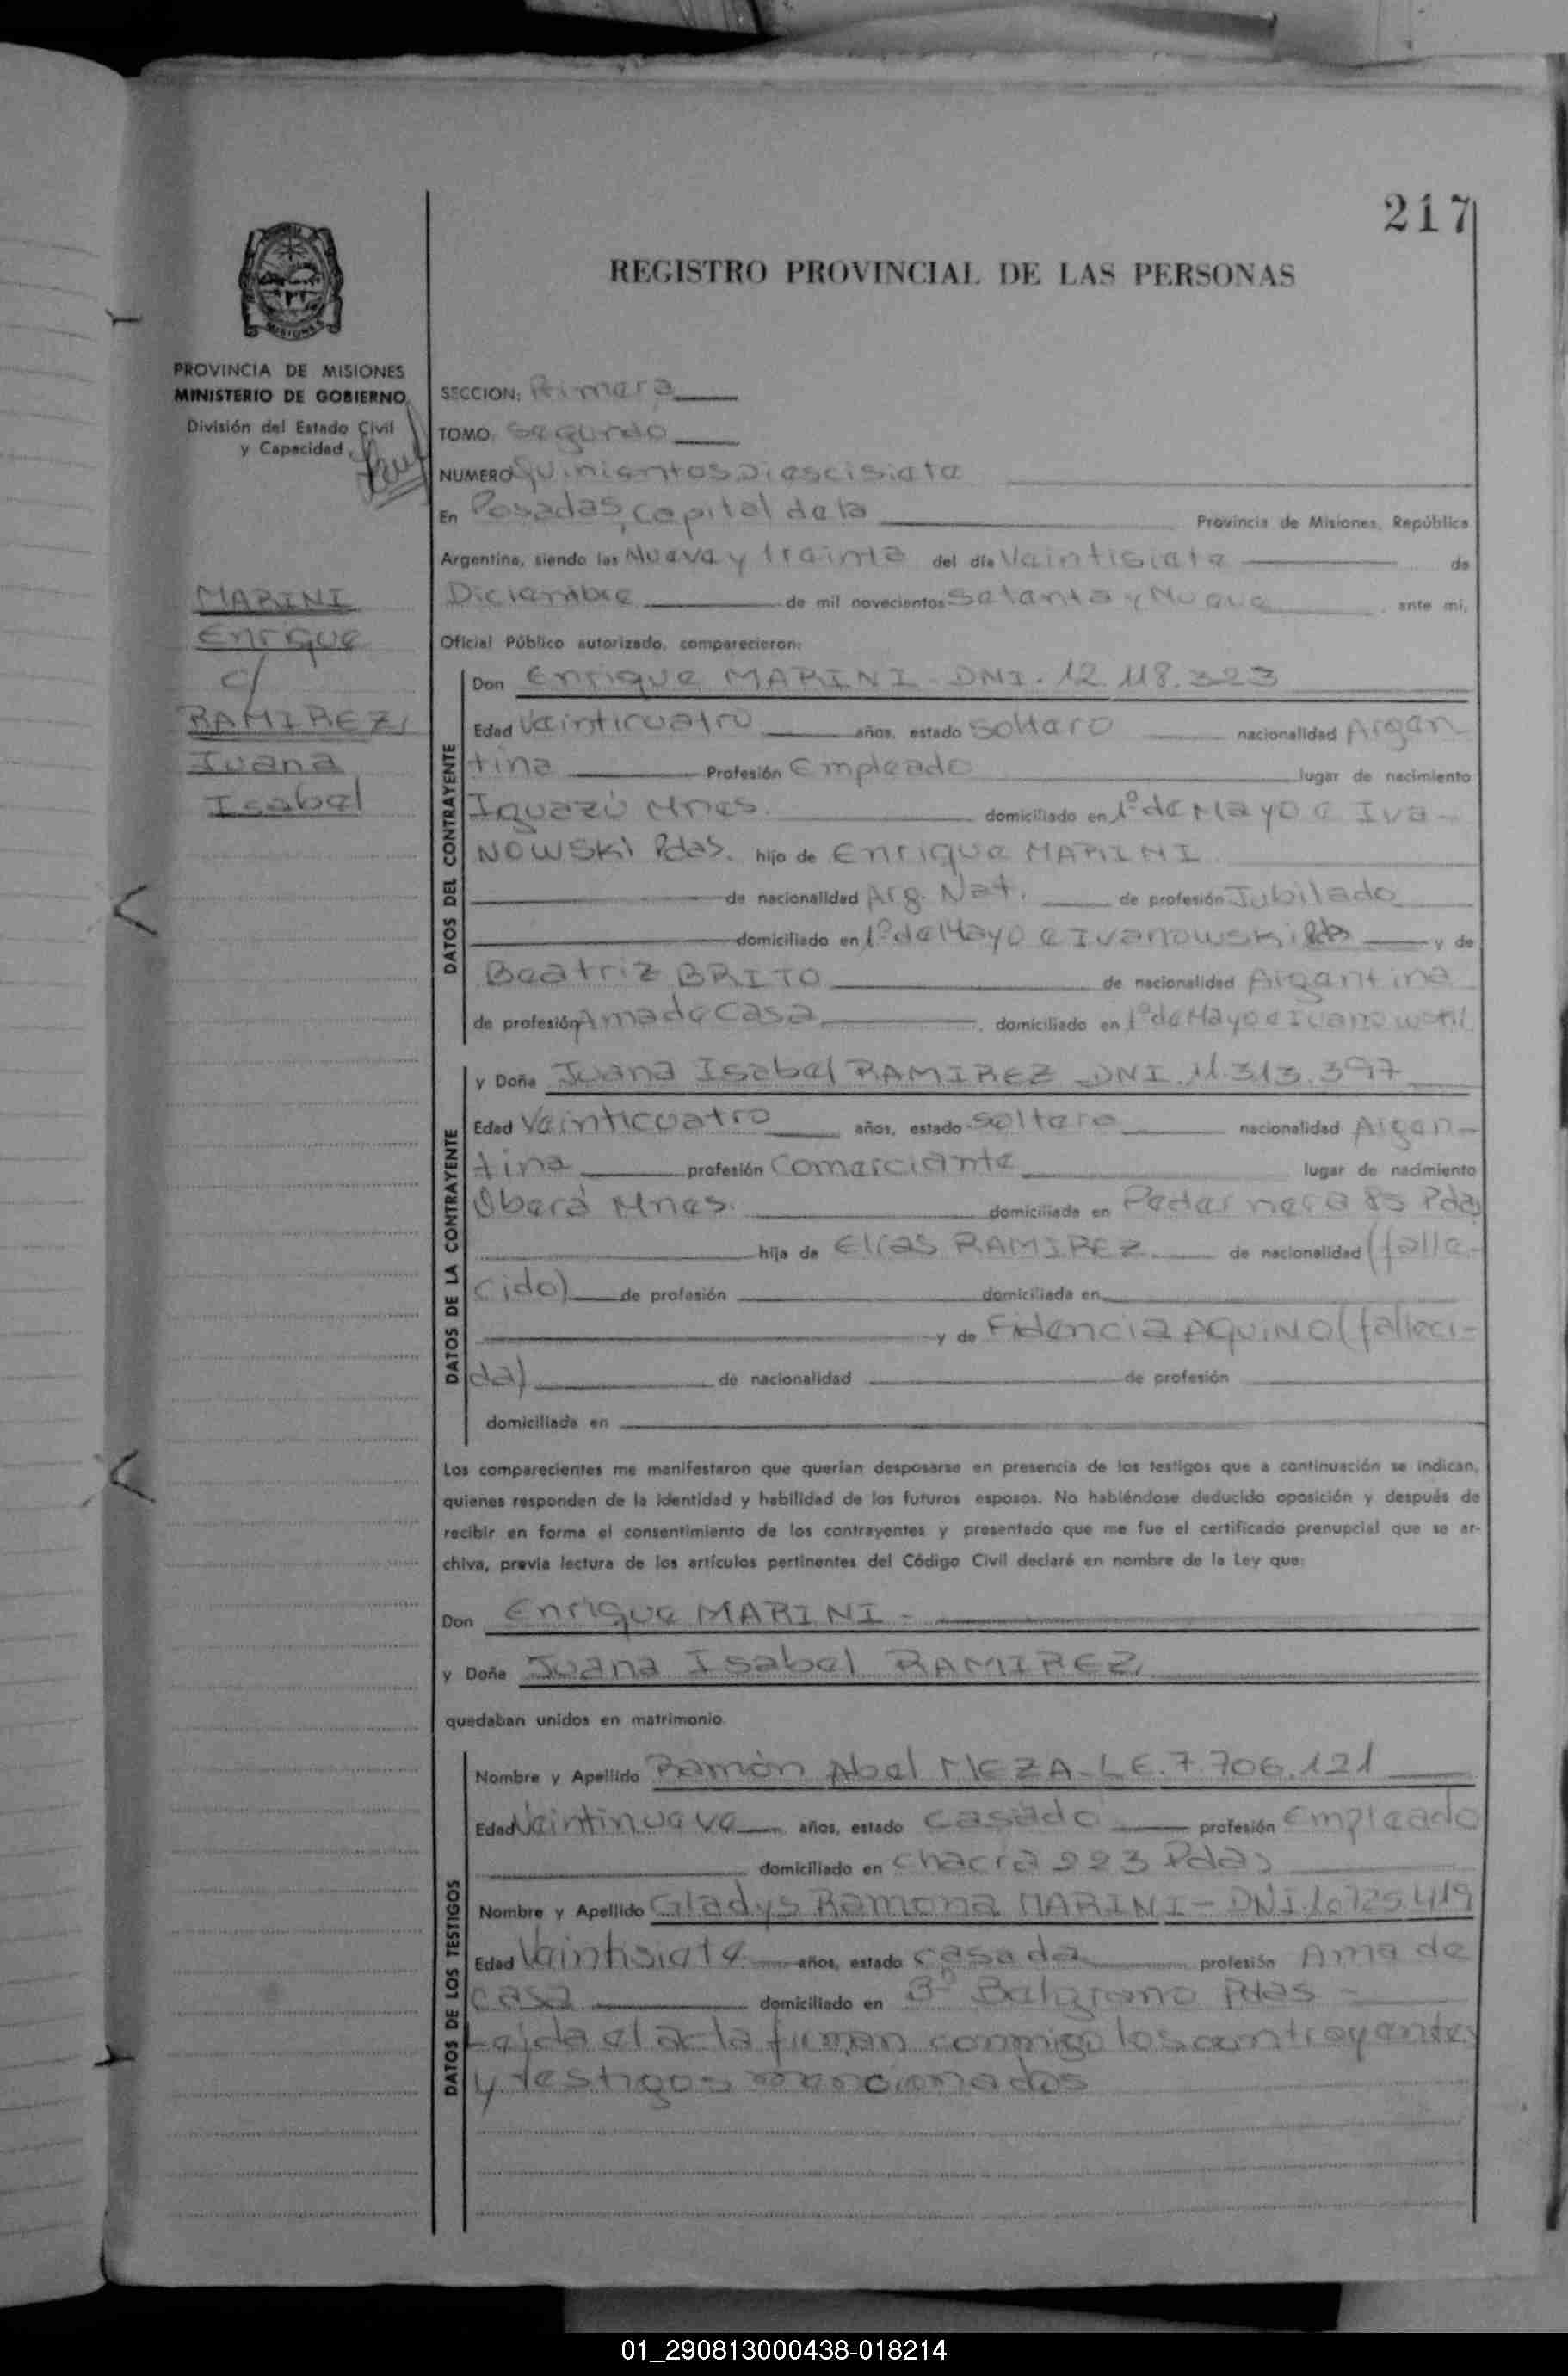 217
REGISTRO PROVINCIAL DE LAS PERSONAS
MISIONES
PROVINCIA DE MISIONES
MINISTERIO DE GOBIERNO
División del Estado Civil
y Capacidad
MARINI
Enrique
c/
RAMIREZ,
Juana
Isabel
SECCION: Primera
TOMO: Segundo
NUMERO Quinientos Diescisiete
En Posadas, Capital de la Provincia de Misiones, República
Argentina, siendo las Nueve y treinta del día Veintisiete de
Diciembre de mil novecientos Setenta y Nueve, ante mí,
Oficial Público autorizado, comparecieron:
DATOS DEL CONTRAYENTE
Don Enrique MARINI DNI. 12.118.323
Edad Veinticuatro años, estado Soltero nacionalidad Argen
tina Profesión Empleado lugar de nacimiento
Iguazú Mnes. domiciliado en 1º de Mayo e Iva-
NOWSKI Pdas. hijo de Enrique MARINI
de nacionalidad Arg. Nat. de profesión Jubilado
domiciliado en 1º de Mayo e Ivanowski Pdas y de
Beatriz BRITO de nacionalidad Argentina
de profesión Ama de Casa, domiciliado en 1º de Mayo e Ivanowski
DATOS DE LA CONTRAYENTE
y Doña Juana Isabel RAMIREZ DNI. 11.313.397
Edad Veinticuatro años, estado Soltera nacionalidad Argen-
tina profesión Comerciante lugar de nacimiento
Oberá Mnes. domiciliada en Pedernera 85 Pdas
hija de Elías RAMIREZ de nacionalidad (falle-
cido) de profesión domiciliada en
y de Fidencia AQUINO (falleci-
da) de nacionalidad de profesión
domiciliada en
Los comparecientes me manifestaron que querían desposarse en presencia de los testigos que a continuación se indican,
quienes responden de la identidad y habilidad de los futuros esposos. No habiéndose deducido oposición y después de
recibir en forma el consentimiento de los contrayentes y presentado que me fue el certificado prenupcial que se ar-
chiva, previa lectura de los artículos pertinentes del Código Civil declaré en nombre de la Ley que:
Don Enrique MARINI -
y Doña Juana Isabel RAMIREZ,
quedaban unidos en matrimonio
DATOS DE LOS TESTIGOS
Nombre y Apellido Ramón Abel MEZA - LE. 7.706.121
Edad Veintinueve años, estado Casado profesión Empleado
domiciliado en Chacra 223 Pdas
Nombre y Apellido Gladys Ramona MARINI - DNI 10.725.419
Edad Veintisiete años, estado Casada profesión Ama de
casa domiciliado en Bº Belgrano Pdas -
Leida el acta firman conmigo los contrayentes
y testigos mencionados
01_290813000438-018214